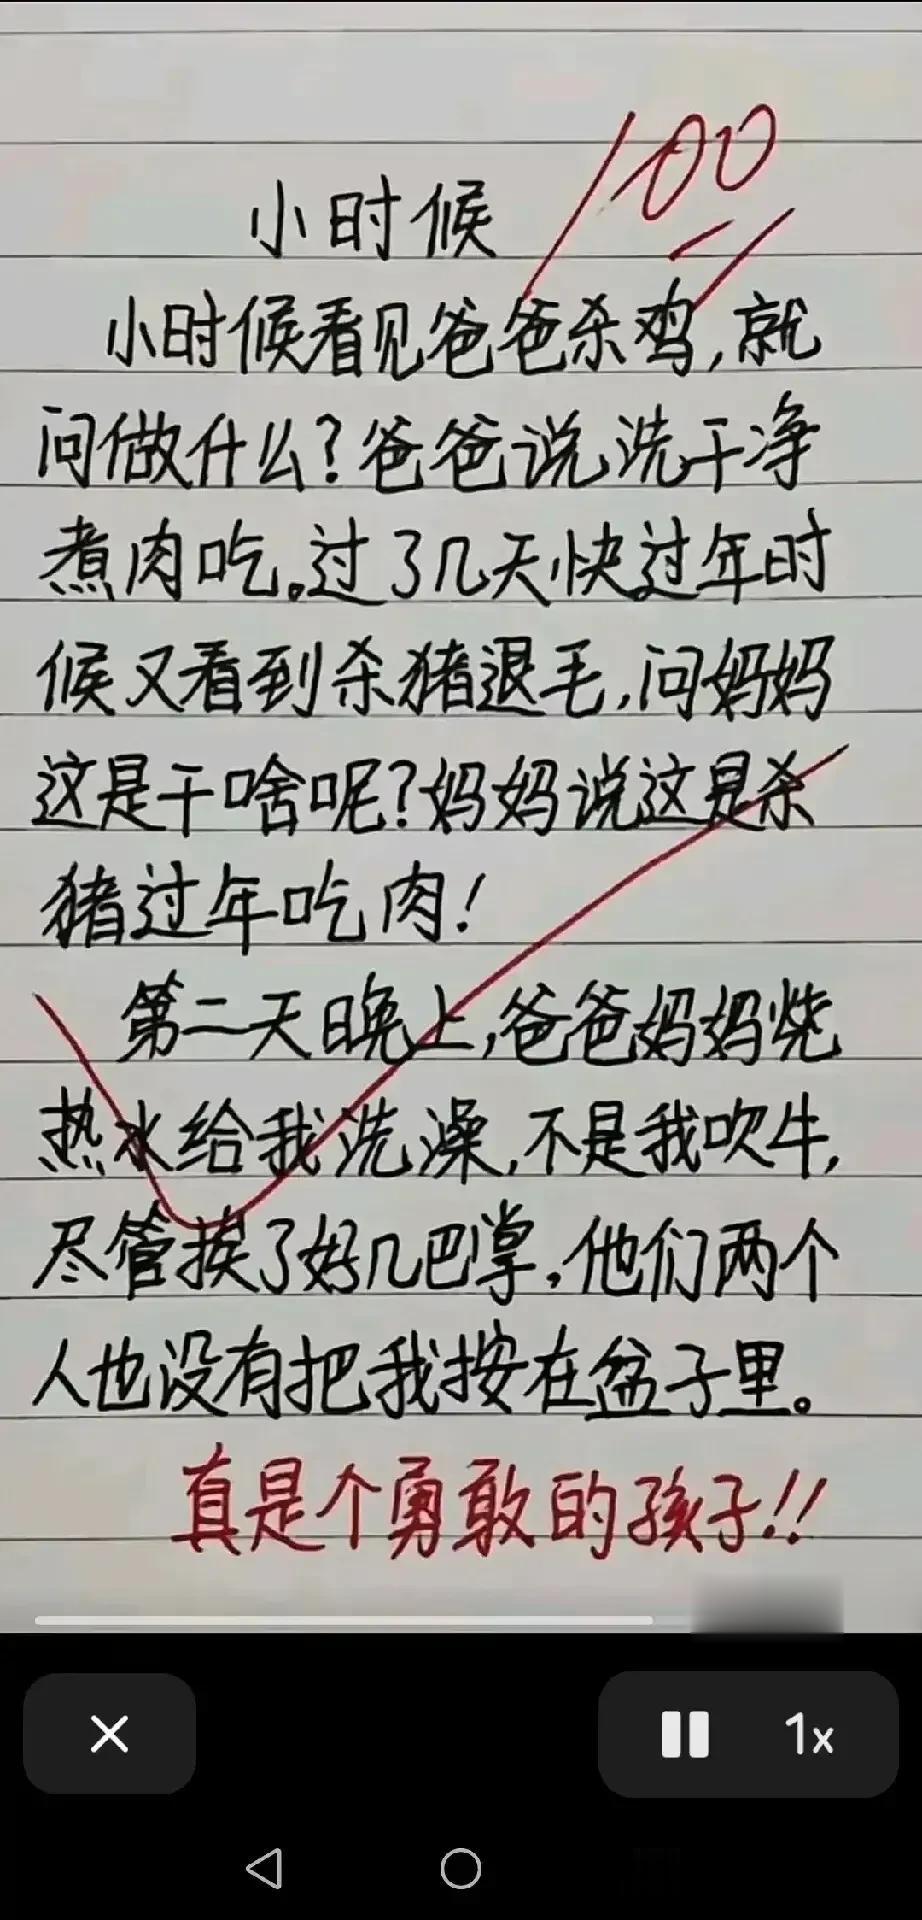 100
小时候
小时候看见爸爸杀鸡,就
问做什么?爸爸说洗干净
煮肉吃。过了几天快过年时
候又看到杀猪退毛,问妈妈
这是干啥呢?妈妈说这是杀
猪过年吃肉!
第二天晚上,爸爸妈妈烧
热水给我洗澡,不是我吹牛,
尽管挨了好几巴掌,他们两个
人也没有把我按在盆子里。
真是个勇敢的孩子!!
1x